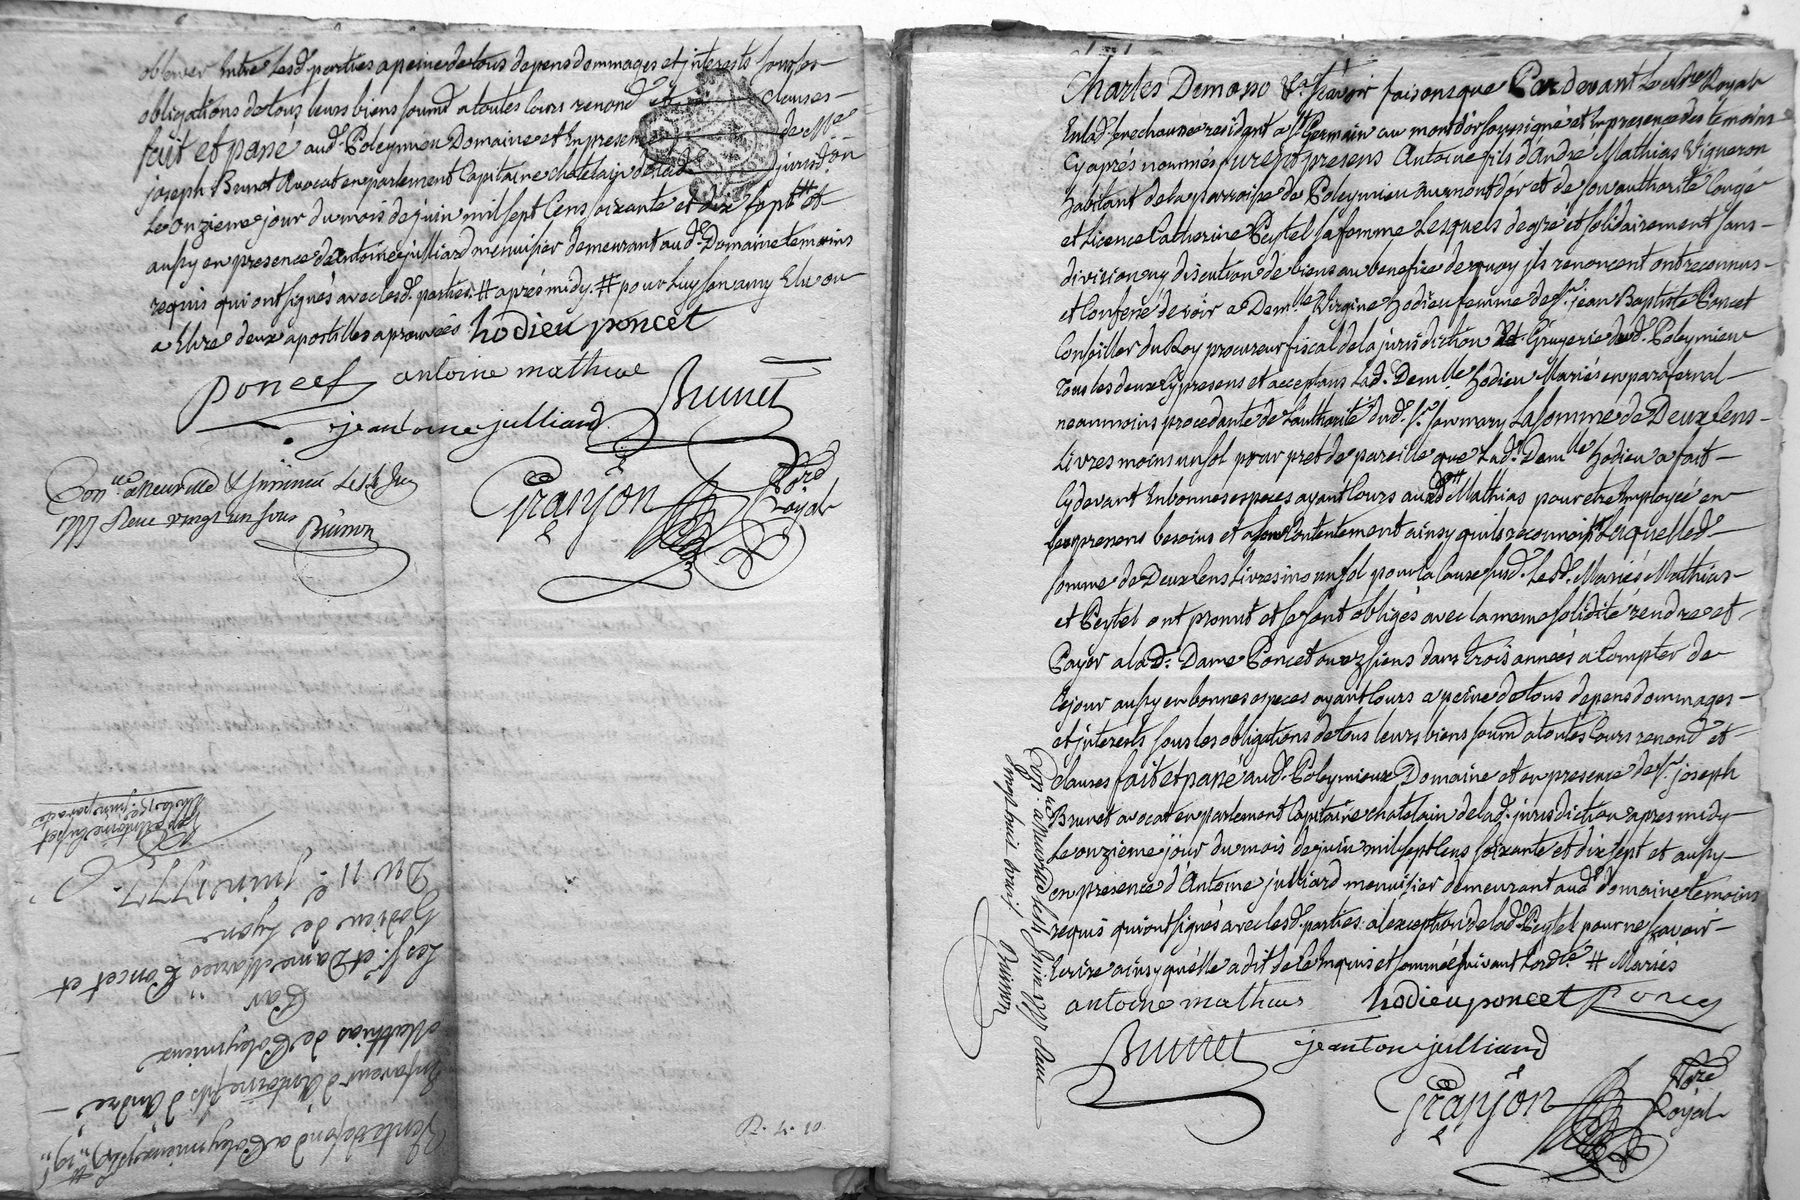 observer entre lesd. parties a peine de tous depens dommages et interests sous les
obligations de tous leurs biens soumis a toutes cours renond. et clauses
fait et passé aud. Poleymieu Domaine et en presence de Me
joseph Brunet avocat en parlement Capitaine chatelain de lad. jurisd.on
Le onzieme jour du mois de juin mil sept Cens soixante et dix sept # et
aussy en presence d'antoine julliard menuisier demeurant aud. Domaine temoins
requis qui ont signés avec lesd. parties. # aprés midy. # pour luy son amy Elu ou
a Elire deux apostilles aprouvées hodieu poncet
poncet antoine mathieu
Brunet
jeantoine julliard
Granjon No.re Royal
Con.lle a Neuville le juin
1777 Receu vingt un sous
Buisson
Charles Demono & sçavoir faisons que Par devant Le no.re Royal
En lad. senechaussee resident a St. Germain au montdor soussigné et en presence des temoins
Cy aprés nommés furent presens Antoine fils d'André Mathias Vigneron
habitant de la parroisse de Poleymieu au mont d'ór et de son authorité Congé
et Licence Catherine Peytel sa femme Lesquels de gré et solidairement sans
division ny discution de biens au benefice de quoy ils renoncent ont reconnus
et Confessé devoir a Dem.lle Virgine hodieu femme de Sr. jean Baptiste Poncet
Conseiller du Roy procureur fiscal de la jurisdiction et Gruyerie dud. Poleymieu
tous les deux Cy presens et acceptans Lad. Demlle hodieu Mariés en parafernal
neanmoins procedante de L'authorité dud. Sr. son mary La somme de Deux Cens
Livres moins un sol pour pret de pareille que Lad. Dem.lle hodieu a fait
Cy devant En bonnes especes ayant Cours aud. # Mathias pour etre Employée en
ses prenens besoins et a son Contentement ainsy qu'ils reconnoit Laquelle d.
somme de Deux Cens Livres mo. un sol pour la Cause susd. Lesd. Mariés Mathias
et Peytel ont promit et se sont obligés avec la meme solidité rendre et
Payer a lad. Dame Poncet ou ez siens dans trois années a Compter de
Ce jour aussy en bonnes especes ayant Cours a peine de tous depens dommages
et interests sous les obligations de tous leurs biens soumis a toutes Cours renond. et
clauses fait et passé aud. Poleymieux Domaine et en presence de Sr. joseph
Brunet avocat en parlement Capitaine chatelain de lad. jurisdiction apres midy
Le onzieme jour du mois de juin mil sept Cens soixante et dix sept et aussy
en presence d'Antoine julliard menuisier demeurant aud. Domaine temoins
requis qui ont signés avec lesd. parties a l'exception de lad. Peytel pour ne sçavoir
Ecrire ainsy qu'elle a dit de Ce Enquis et sommée suivant Lord.ce # Mariés
antoine mathias hodieu poncet Poncet
Brunet jeantoine julliard
Granjon No.re Royal
Con.lle a Neuville le juin 1777 Receu
vingt huit sous Buisson
Vente de fond a Poleymieux
En faveur d'Antoine fils d'André
Mathias de Poleymieux
Par
Les Sr. et Dame Mariés Poncet et
hodieu de Lyon
Du 11.e juin 1777